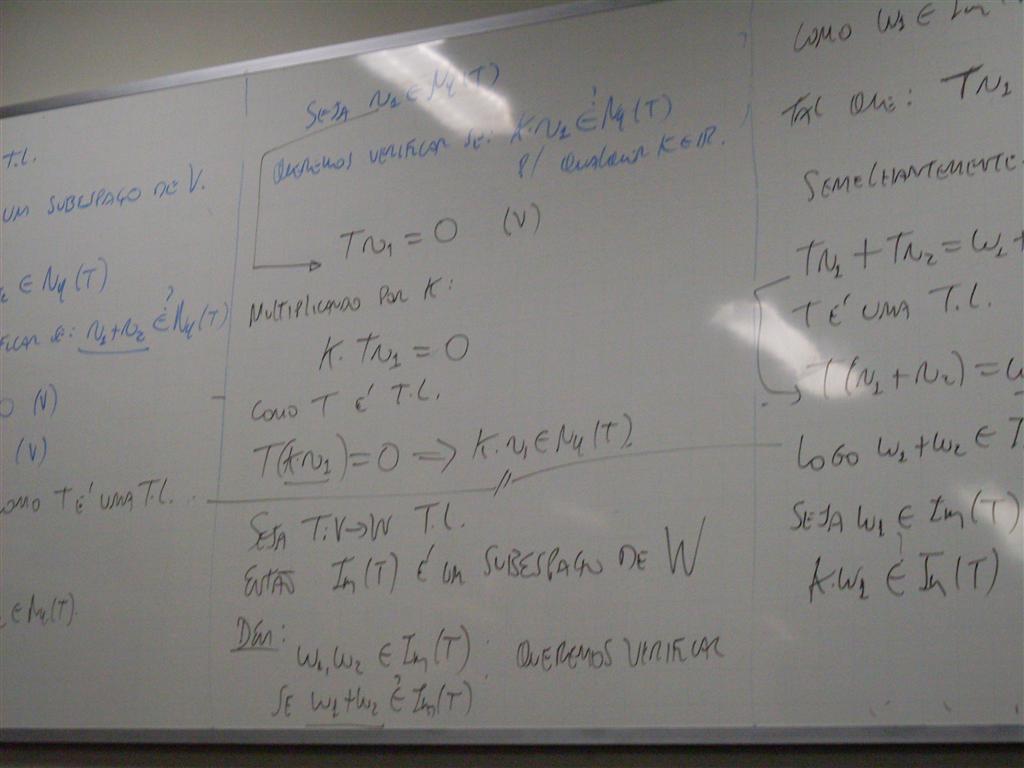 T.L.
UM SUBESPAÇO DE V.
∈ Nu(T)
v1+v2 ∈? Nu(T)
0 (V)
(V)
COMO T É UMA T.L.
∈ Nu(T).
SEJA v1 ∈ Nu(T)
QUEREMOS VERIFICAR SE: K.v1 ∈? Nu(T)
P/ QUALQUER K ∈ IR.
Tv1 = 0 (V)
MULTIPLICANDO POR K:
K.Tv1 = 0
COMO T É T.L.
T(kv1) = 0 => K.v1 ∈ Nu(T).
SEJA T:V→W T.L.
ENTÃO Im(T) É UM SUBESPAÇO DE W
DEM:
w1,w2 ∈ Im(T): QUEREMOS VERIFICAR
SE w1+w2 ∈? Im(T)
COMO w1 ∈ Im
TAL QUE: Tv1
SEMELHANTEMENTE
Tv1 + Tv2 = w1 +
T É UMA T.L.
T(v1+v2) =
LOGO w1+w2 ∈ I
SEJA w1 ∈ Im(T)
K.w1 ∈? Im(T)